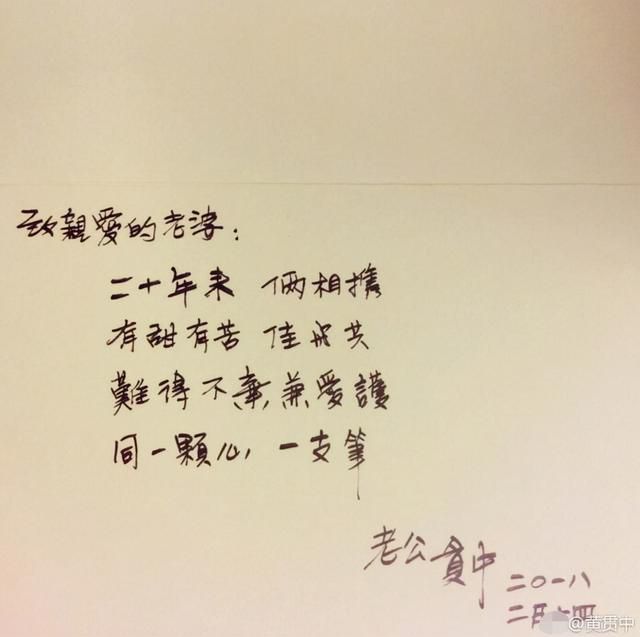 致親愛的老婆：
二十年來 倆相攜
有甜有苦 佳 共
難得不棄兼愛護
同一顆心 一支筆
老公貫中
二〇一八
二月十四
@黄贯中